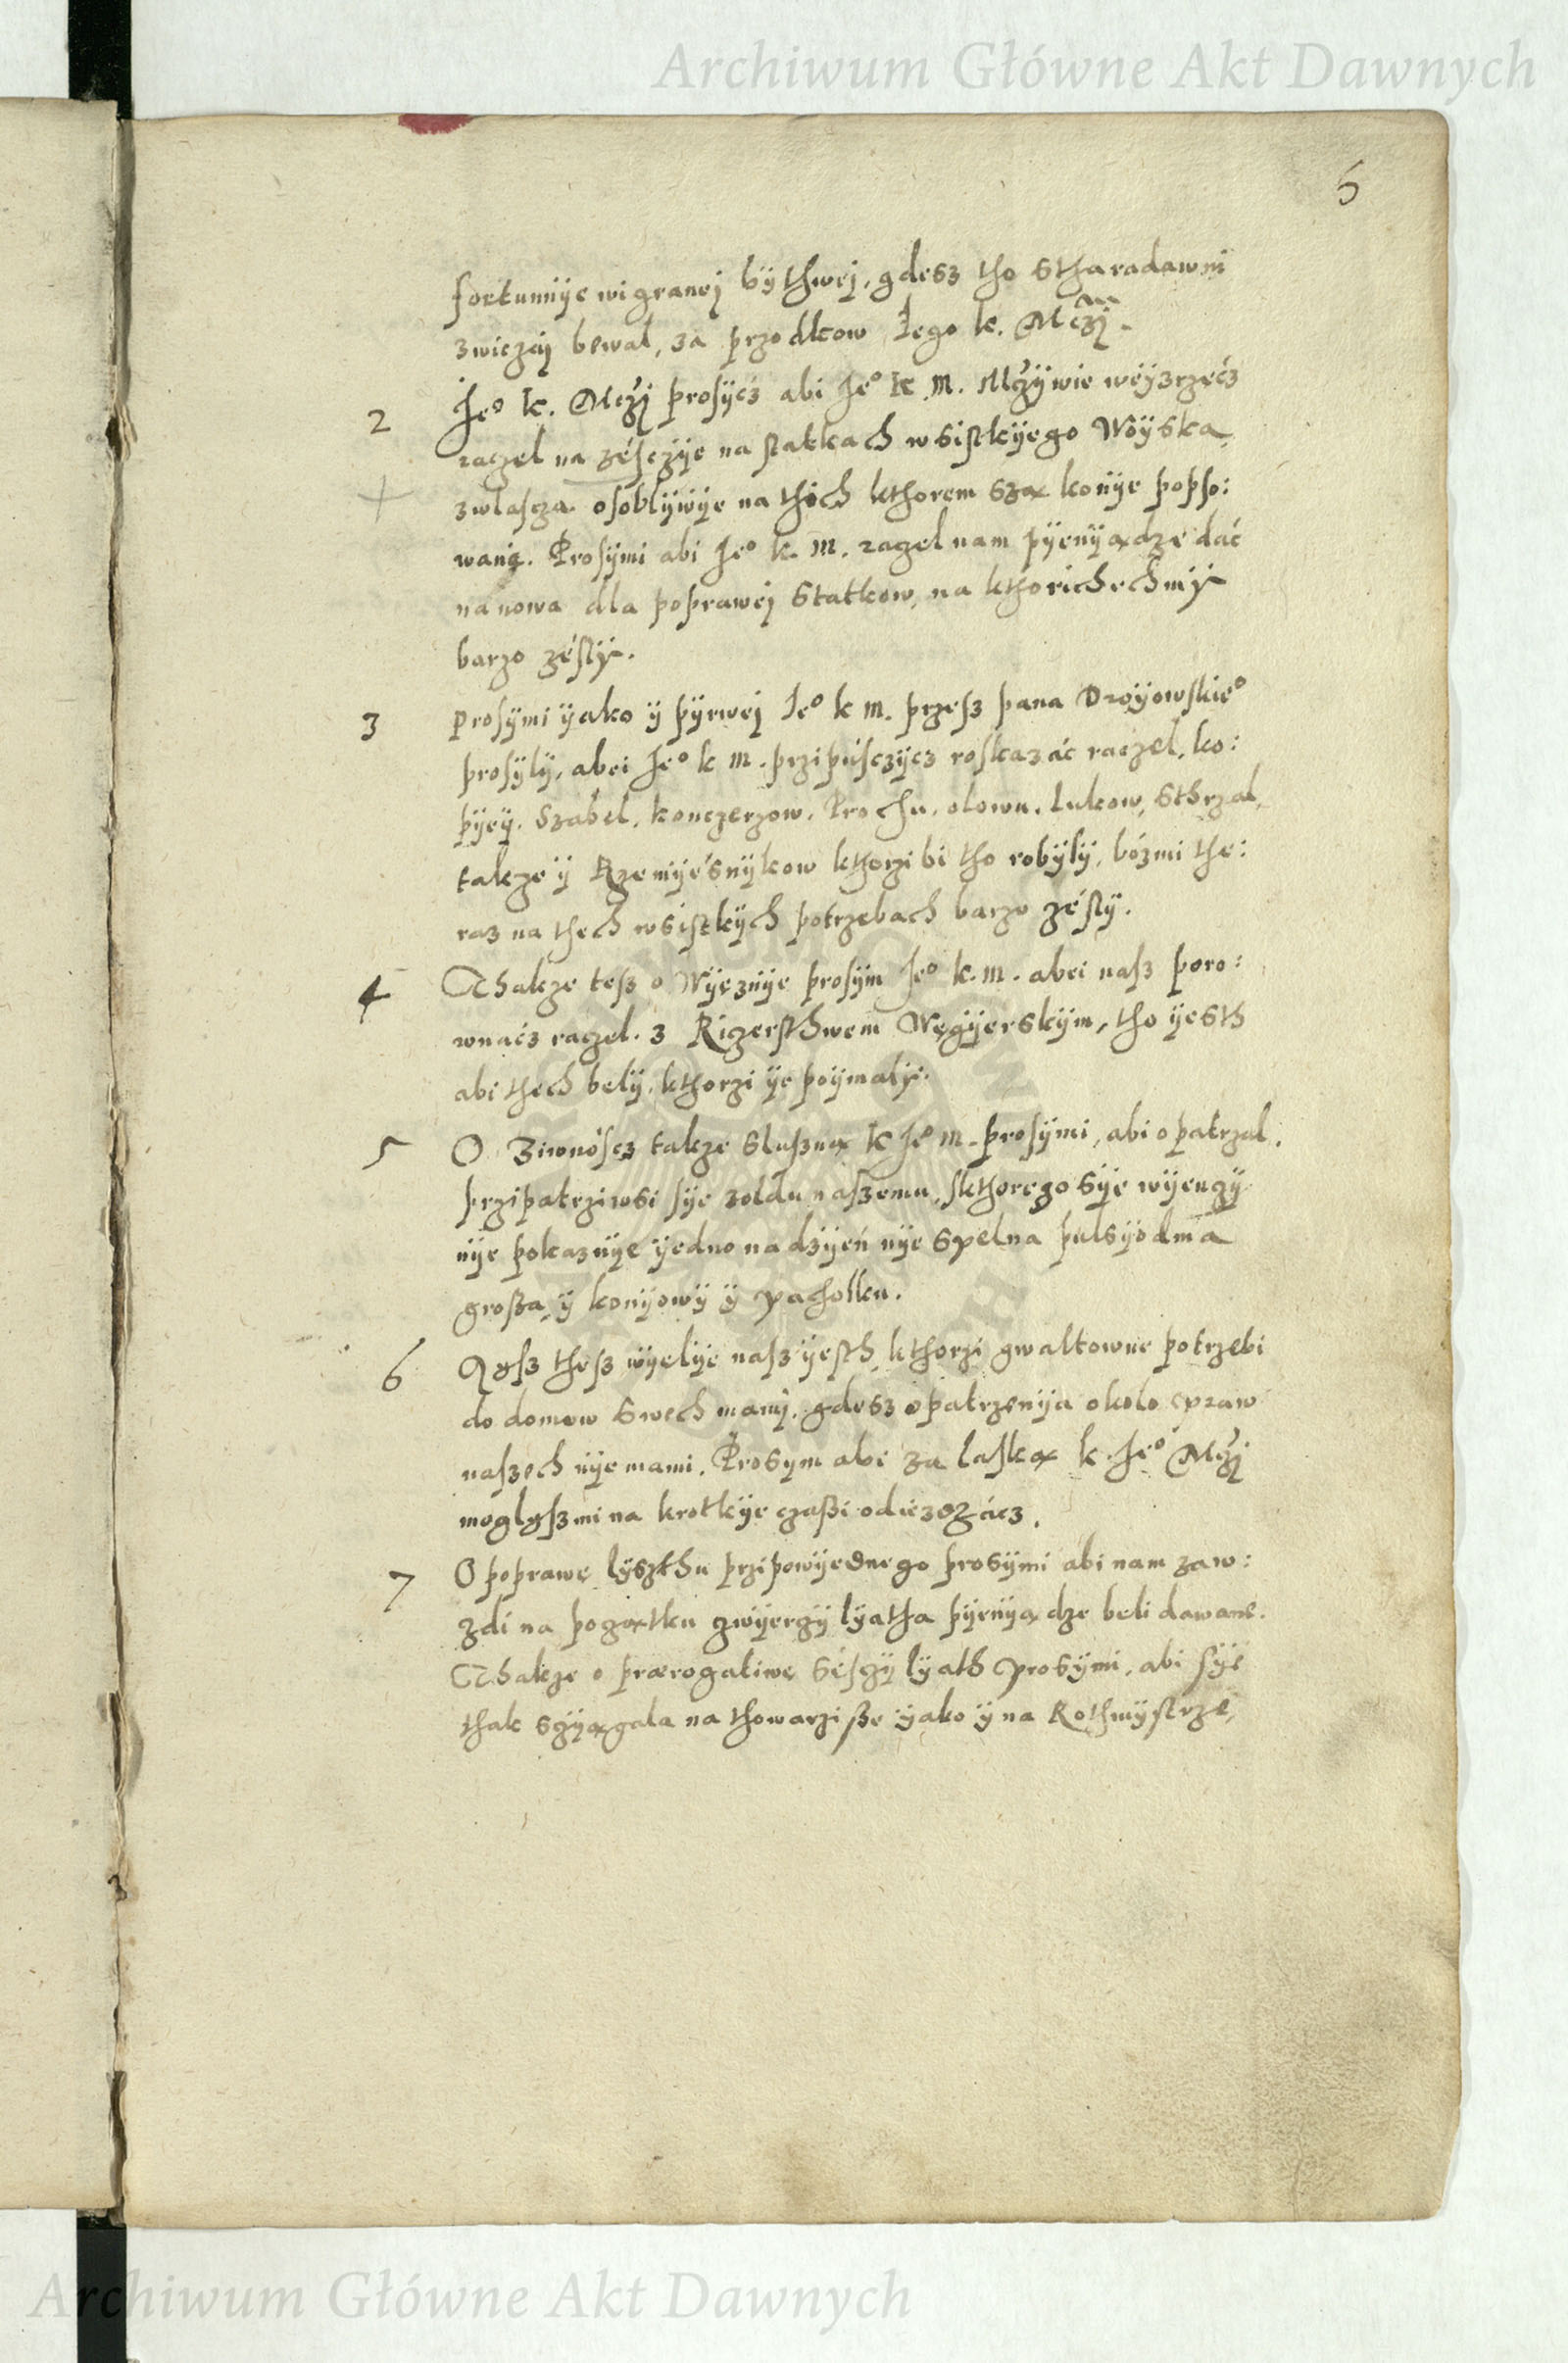 Archiwum Główne Akt Dawnych
6
fortunnÿe wigranej bÿthwej, gdesz tho stharadawni
zwiczaj bewal, za przodkow Jego k. Mczj.
2 Jeº k. Mczj prosÿcz abi Jeº k. m. Mczÿwie wejzrzecz
raczel na zesczÿe na statkach wsistkÿego Woÿska,
zwlascza osoblÿwÿe na thich kthorem szą konÿe popso:
wanę. Prosÿmi abi Jeº k. m. raczel nam pÿenÿądze dać
na nowa dla poprawej statkow, na kthorichechmÿ
barzo zeslÿ.
3 Prosÿmi ÿako ÿ pÿrwej Jeº k m. przesz pana Droÿowskieº
prosÿlÿ, abei Jeº k m. przipusczÿcz roskazác raczel, ko:
pÿeÿ, Szabel, konczerzow, Prochu, olowu, lukow, Sthrzal,
takze ÿ Rzemÿesnÿkow kthorzi bi tho robÿlÿ, bozmi the:
raz na thech wsistkÿch potrzebach barzo zeslÿ.
4 Thakze tesz o Wÿęznÿe prosÿm Jeº k. m. abei nasz poro:
wnacz raczel z Riczersthwem Węgÿerskÿm, tho ÿesth
abi thech belÿ, kthorzi ÿe poÿmalÿ.
5 O Ziwnoscz takze sluszną k Jeº m. prosÿmi, abi opatrzal,
przipatrziwsi sÿe zoldu naszemu, skthorego sÿe wÿenczÿ
nÿe pokaznÿe ÿedno na dzÿeń nÿe spelna pulsÿodma
grosza, ÿ konÿowÿ ÿ pacholku.
6 Isz thesz wÿelÿe nasz ÿesth, kthorzi gwaltowne potrzebi
do domow swech mamÿ, gdesz opatrzenÿa okolo spraw
naszech nÿe mami. Prosym abi za laską k. Jeº Mczj
moglÿszmi na krotkÿe czassi odiezdzácz.
7 O poprawę lÿszthu przipowÿednego prosÿmi abi nam zaw:
zdi na początku czwÿerczÿ lÿatha pÿenÿądze beli dawane.
Thakze o prærogatiwę sesczÿ lÿath prosÿmi, abi sÿe
thak sczÿągala na thowarzisse ÿako ÿ na Rothmÿstrze,
Archiwum Główne Akt Dawnych